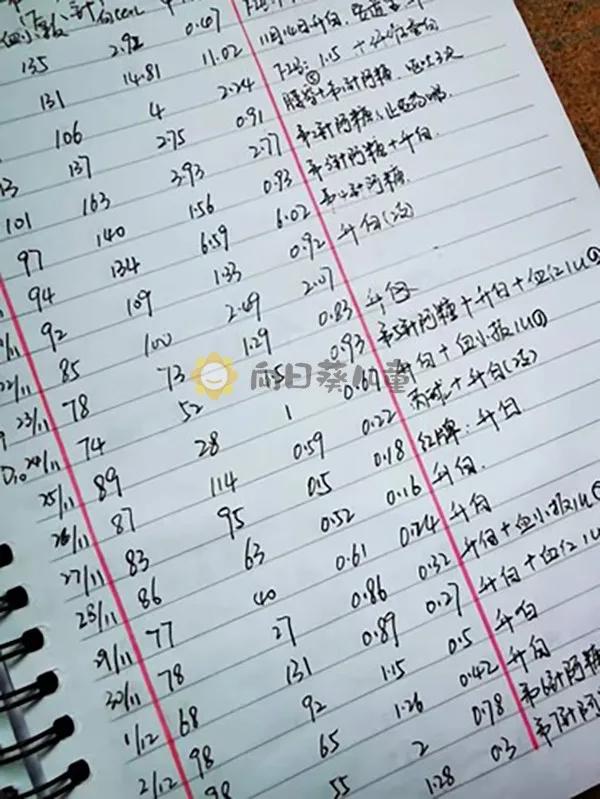 血小板
135 2.92 0.67
131 14.81 11.02 11月14日升白
106 4 2.24 1.5 +
13 137 2.75 0.91 腰穿+第1针阿糖
101 163 3.93 2.77 第2针阿糖
97 140 1.56 0.93 第3针阿糖+升白
94 134 6.59 6.02 第4针阿糖
/11 92 109 1.33 0.92 升白
22/11 85 100 2.49 2.07
23/11 78 73 1.29 0.83 升白
D10 24/11 74 52 1.5 0.93 第5针阿糖+升白+血红1U
25/11 89 28 1 0.61 升白+血小板1U
26/11 87 114 0.59 0.22 丙球+升白
27/11 83 95 0.5 0.18 红牌:升白
28/11 86 63 0.52 0.16 升白.
29/11 77 40 0.61 0.24 升白
30/11 78 27 0.86 0.32 升白+血小板1U
1/12 68 131 0.89 0.27 升白+血红1U
2/12 98 92 1.15 0.5 升白
98 65 1.26 0.42 升白
55 2 0.78 第6针阿糖
1.28 0.3 第7针阿
向日葵儿童